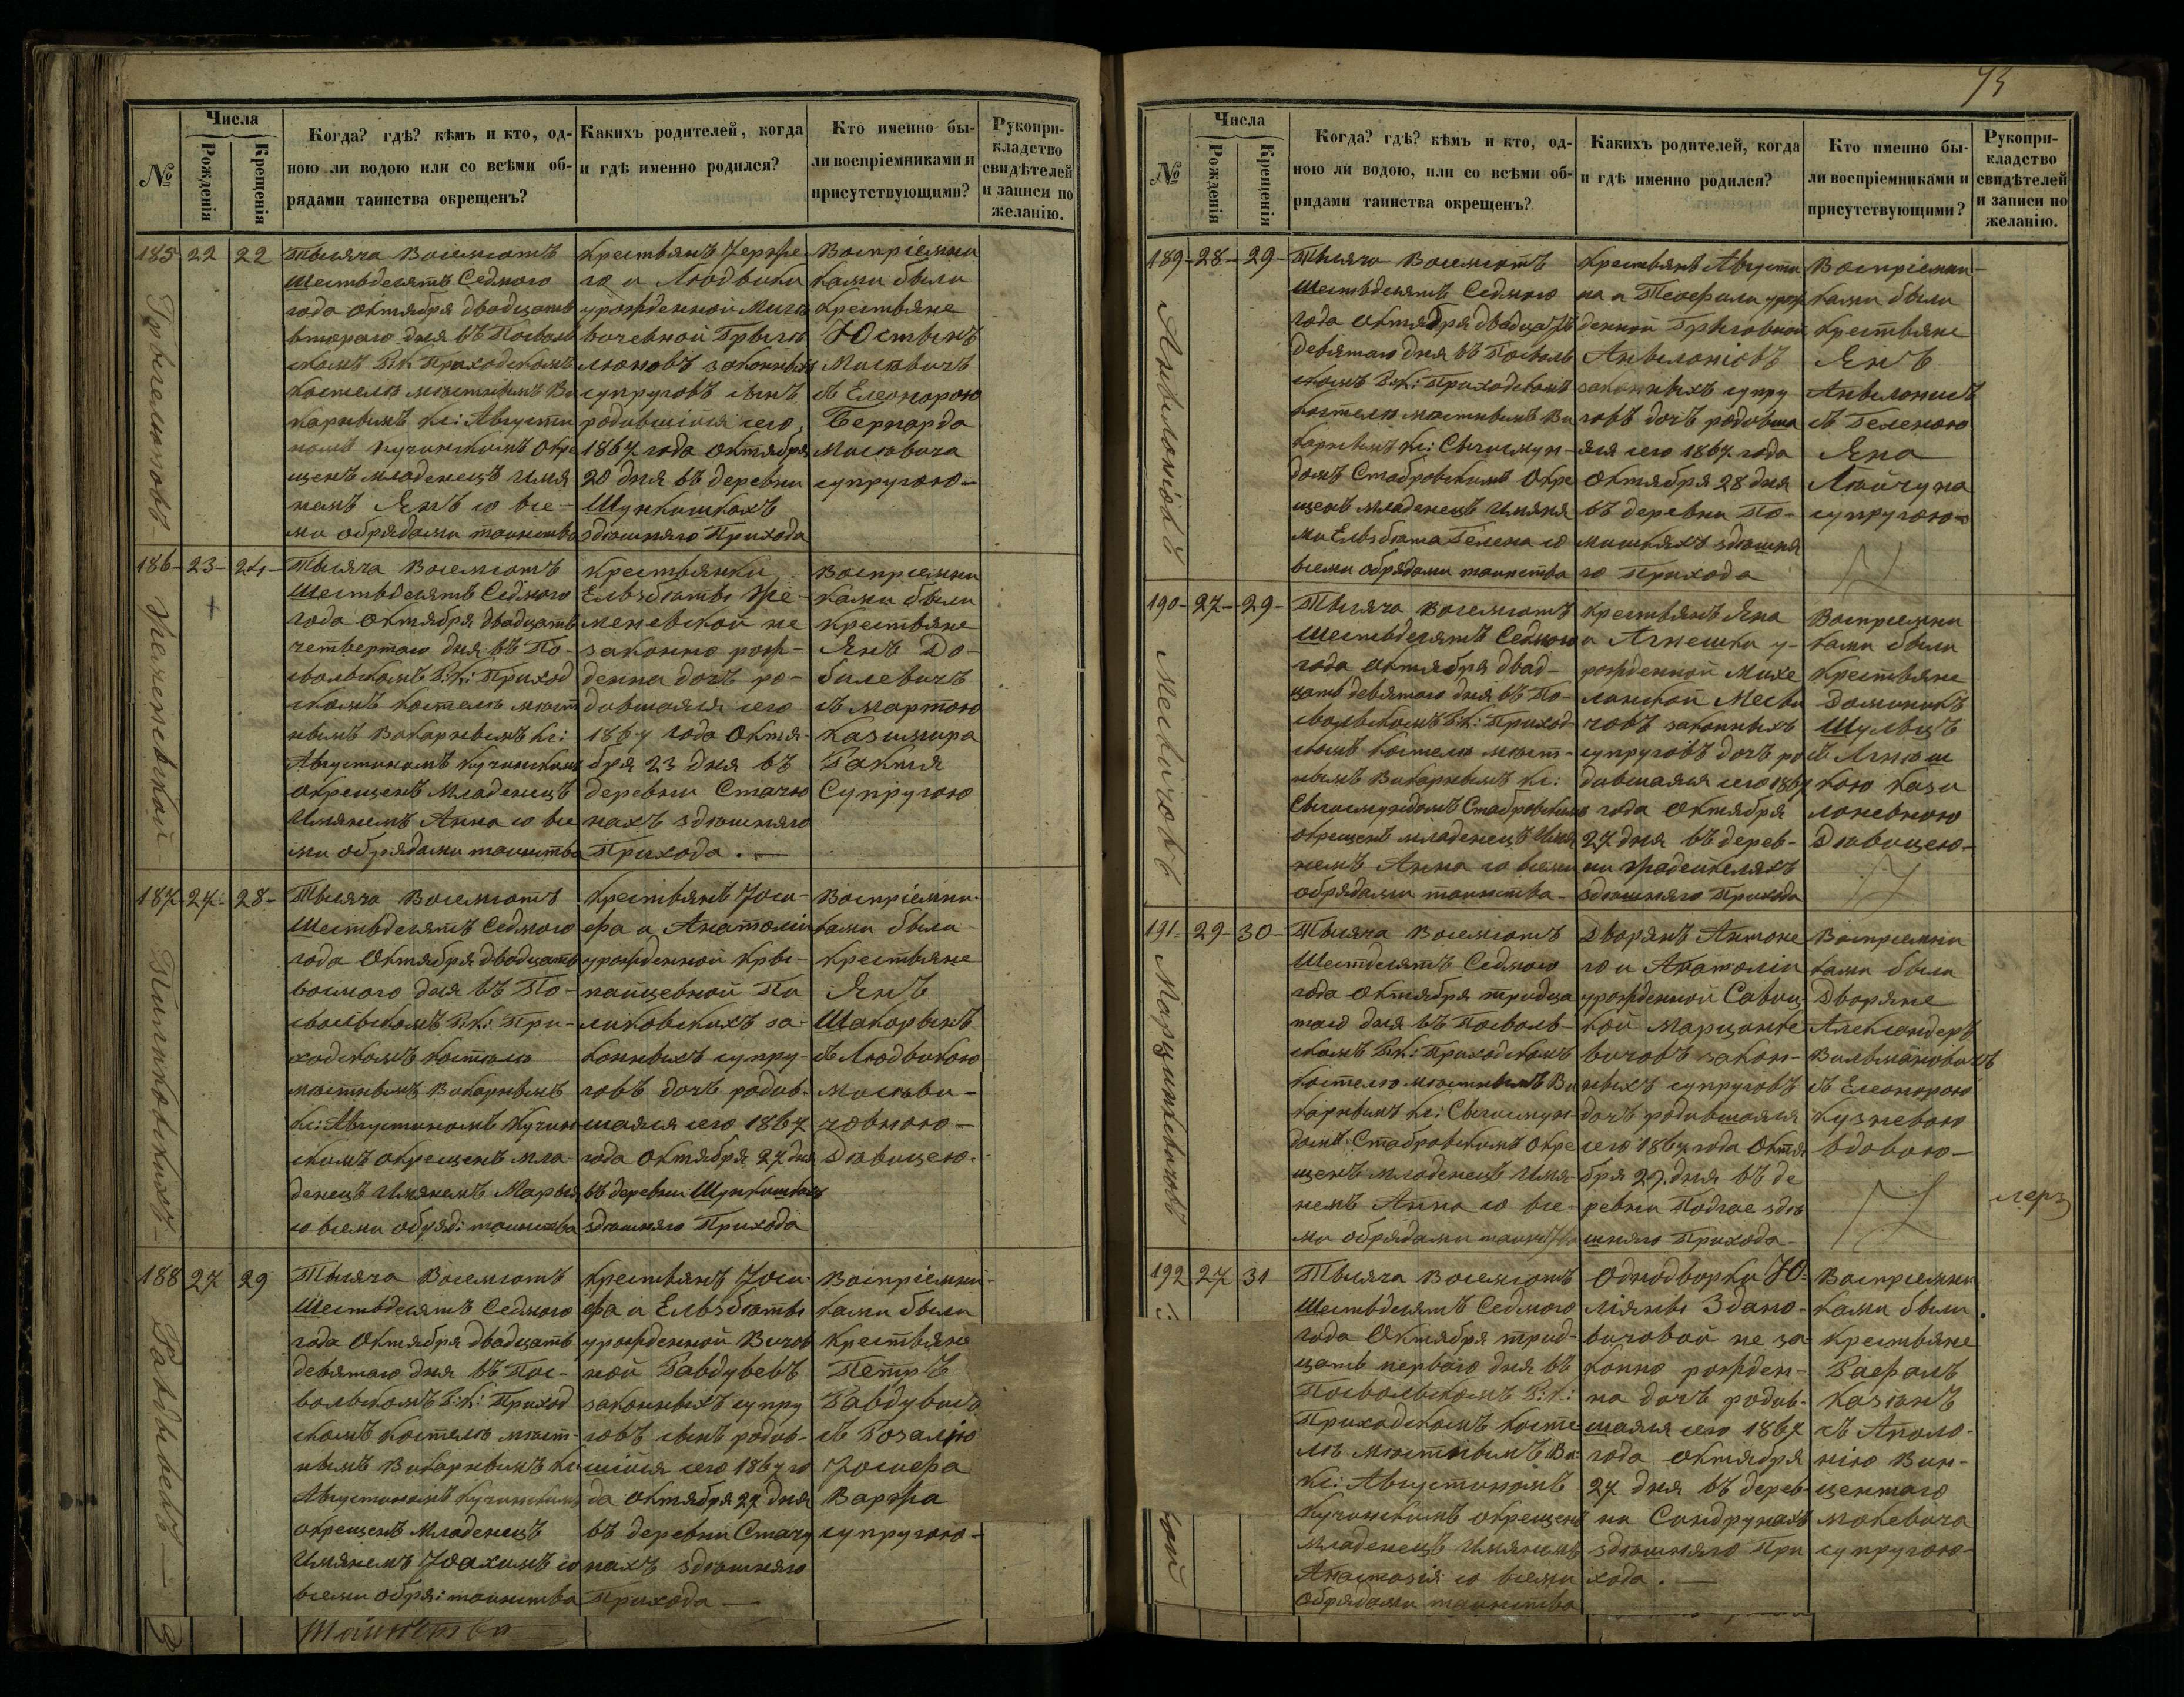 Числа
№
Рожденія
Крещенія
Когда? гдѣ? кѣмъ и кто, од-
ною ли водою или со всѣми об-
рядами таинства окрещенъ?
Какихъ родителей, когда
и гдѣ именно родился?
Кто именно бы-
ли воспріемниками и
присутствующими?
Рукопри-
кладство
свидѣтелей
и записи по
желанію.
185 22 22
Тысяча Восемсотъ
Шестьдесятъ Седмого
года Октября двадцать
втораго дня въ Посволь
скомъ Р:К: Приходскомъ
костелѣ мѣстнымъ Ви
карнымъ Кс: Августи
номъ Кучинскимъ Окре
щенъ младенецъ имя
немъ Янъ со все-
ми обрядами таинства
Крестьянъ Ержи
го и Людвики
урожденной Мись
законныхъ
супруговъ сынъ
родившійся сего
1867 года Октября
20 дня въ деревни
Шункишкахъ
здѣшняго Прихода
Воспріемни
ками были
Крестьяне
Юстынъ
Мисевичъ
съ Елеонорою
Бернарда
Мисевича
супругою-
186- 23- 24-
Тысяча Восемсотъ
Шестьдесятъ Седмого
года Октября двадцать
четвертаго дня въ По-
свольскомъ Р:К: Приход
скомъ Костелѣ мѣст
нымъ Викарнымъ Кс:
Августиномъ Кучинскимъ
окрещенъ Младенецъ
Имянемъ Анна со все
ми обрядами таинства
Крестьянки
Ельзбѣты Же-
меневской не
законно рож-
денна дочь ро-
дившаяся сего
1867 года Октя-
бря 23 дня въ
деревни Стачю
нахъ здѣшняго
Прихода.
Воспріемни
ками были
Крестьяне
Янъ До-
билевичъ
съ Мартою
Казимира
Супругою
187- 27- 28-
Тысяча Восемсотъ
Шестьдесятъ Седмого
года Октября двадцать
восмого дня въ По-
свольскомъ Р:К: При-
ходскомъ костелѣ
мѣстнымъ Викарнымъ
Кс: Августиномъ Кучин
скимъ окрещенъ мла-
денецъ Имянемъ Марья
со всеми обряд: таинства
Крестьянъ Іоси-
фа и Анатоліи
урожденной Кры-
законныхъ супру-
говъ дочь родив-
шаяся сего 1867
года Октября 27 дня
въ деревни Шункишкахъ
здѣшняго Прихода
Воспріемни-
ками были
Крестьяне
Янъ
съ Людвикою
Мисеви-
човною-
Дѣвицею-
188 27 29
Тысяча Восемсотъ
Шестьдесятъ Седмого
года Октября двадцать
девятаго дня въ Пос-
вольскомъ Р:К: Приход
скомъ Костелѣ мѣст-
нымъ Викарнымъ Кс
Августиномъ Кучинскимъ
окрещенъ Младенецъ
Имянемъ Іоахимъ со
всеми обря: таинства
Крестьянъ Іоси-
фа и Ельзбѣты
урожденной
ной Гавдувевъ
законныхъ супру
говъ сынъ родив-
шійся сего 1867 го
да Октября 27 дня
въ деревни Стачу
нахъ здѣшняго
Прихода
Воспріемни-
ками были
Крестьяне
Петръ
съ Розалію
Іосифа
супругою-
Таинства
73
Числа
№
Рожденія
Крещенія
Когда? гдѣ? кѣмъ и кто, од-
ною ли водою, или со всѣми об-
рядами таинства окрещенъ?
Какихъ родителей, когда
и гдѣ именно родился?
Кто именно бы-
ли воспріемниками и
присутствующими?
Рукопри-
кладство
свидѣтелей
и записи по
желанію.
189- 28- 29-
Тысяча Восемсотъ
Шестьдесятъ Седмого
года Октября двадцать
девятаго дня въ Посволь
скомъ Р:К: Приходскомъ
Костелѣ мѣстнымъ Ви
карнымъ Кс: Сыгисмун-
домъ Стабровскимъ Окре
щенъ младенецъ Имяня
ми Ельзбѣта Гелена со
всеми обрядами таинства
Крестьянъ Августи
на и Теофили урож
денной
законныхъ супру
говъ дочь родивша
яся сего 1867 года
Октября 28 дня
въ деревни По-
здѣшня
го Прихода
Воспріемни-
ками были
Крестьяне
Янъ
съ Геленою
Яна
супругою-
190- 27- 29-
Тысяча Восемсотъ
Шестьдесятъ Седмого
года Октября двад-
цать девятаго дня въ По-
свольскомъ Р:К: Приход-
скомъ Костелѣ мѣст-
нымъ Викарнымъ Кс:
Сыгисмундомъ Стабровскимъ
окрещенъ младенецъ Имя
немъ Анна со всеми
обрядами таинства-
Крестьянъ Яна
и Агнешки у-
рожденной
законныхъ
супруговъ дочь ро
дившаяся сего 1867
года Октября
27 дня въ дерев-
ни
здѣшняго Прихода
Воспріемни
ками были
Крестьяне
Доминикъ
Шульцъ
съ Агнѣш
кою
Дѣвицею-
191- 29- 30-
Марцинкевичовъ
Тысяча Восемсотъ
Шестдесятъ Седмого
года Октября тридца
таго дня въ Посволь-
скомъ Р:К: Приходскомъ
Костелѣ мѣстнымъ Ви
карнымъ Кс: Сыгисмун-
домъ Стабровскимъ Окре
щенъ младенецъ Имя-
немъ Анна со все-
ми обрядами таинства
Дворянъ Антоне
го и Анатоліи
урожденной Савиц
кой Марцинке
вичовъ закон-
ныхъ супруговъ
дочь родившаяся
сего 1867 года Октя
бря 29 дня въ де
ревни Подгае здѣ
шняго Прихода-
Воспріемни
ками были
Дворяне
Александеръ
съ Елеонорою
вдовою-
192 27 31
Тысяча Восемсотъ
Шестьдесятъ Седмого
года Октября трид-
цать перваго дня въ
Посвольскомъ Р:К:
Приходскомъ Косте
лѣ мѣстнымъ Ви:
Кс: Августиномъ
Кучинскимъ окрещенъ
Младенецъ Имянемъ
Анастазія со всеми
Обрядами таинства
Однодворки Ю-
ліянны Здано-
вичовой не за-
конно рожден-
на дочь родив-
шаяся сего 1867
года Октября
27 дня въ дерев-
ни Сандрунахъ
здѣшняго При
хода.
Воспріемни
ками были
Крестьяне
Рафалъ
съ Аполо-
нію Вин-
центаго
супругою-